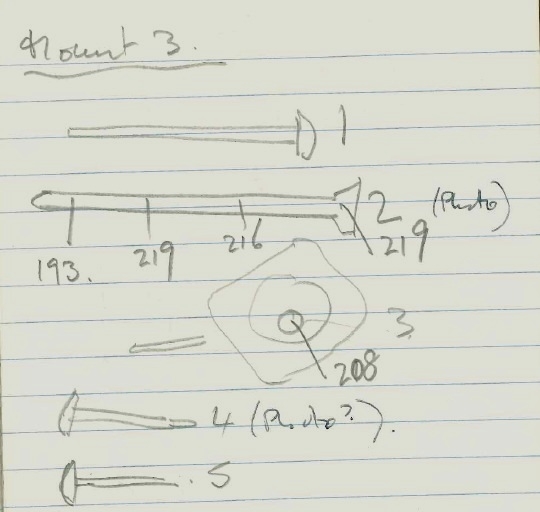 Mount 3.
1
2 (Photo)
193. 219 216 219
3
208
4 (Photo?).
5